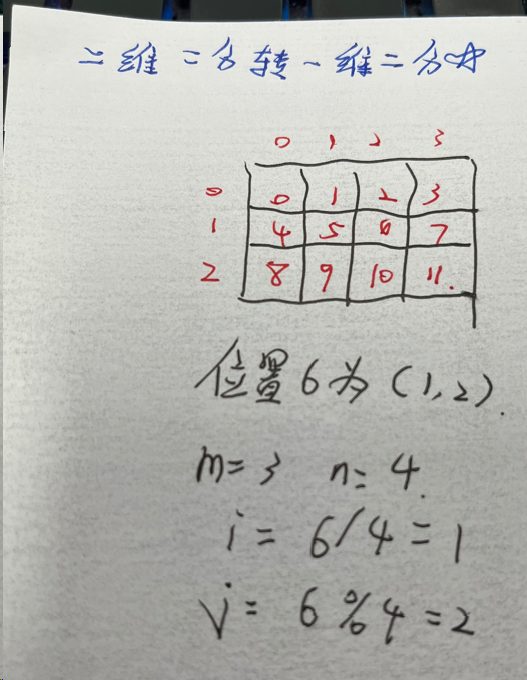 二维二分转一维二分
0 1 2 3
0 0 1 2 3
1 4 5 6 7
2 8 9 10 11.
位置6为(1,2).
m=3 n=4.
i=6/4=1
j=6%4=2